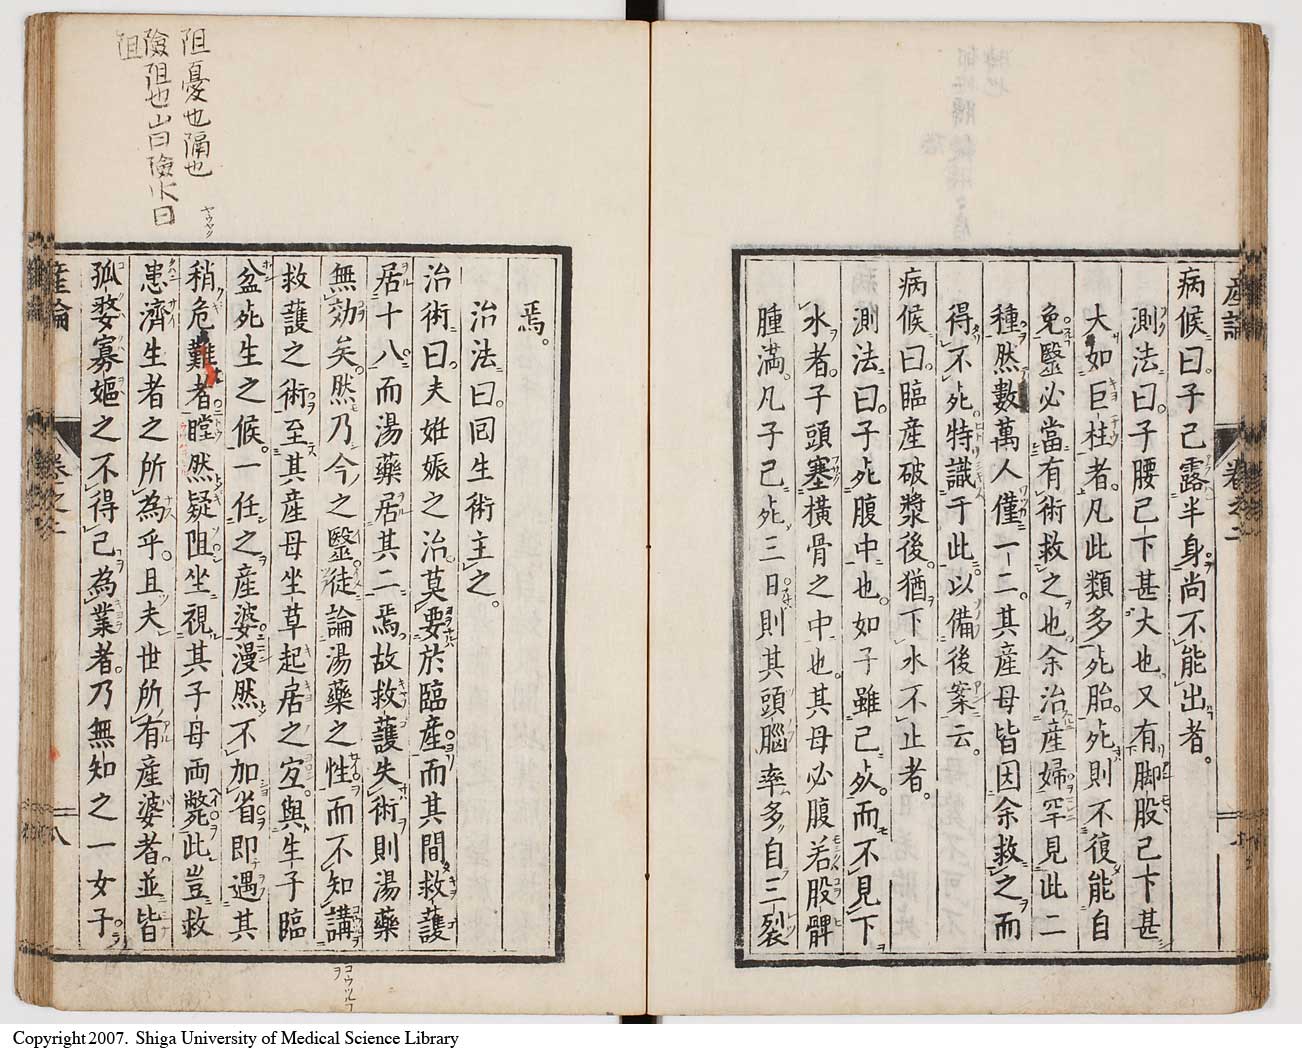 產論
卷之二
病候曰子已露半身尚不能出者。
測法曰。子腰已下甚大也。又有脚股已下甚
大如巨柱者。凡此類多死胎。死則不復能自
免。醫必當有術救之也。余治產婦罕見此二
種。然數萬人僅一二。其產母皆因余救之而
得不死。特識于此。以備後案云。
病候曰。臨產破漿後。猶下水不止者。
測法曰。子死腹中也。如子雖已死。而不見下
水者。子頭塞橫骨之中也。其母必腹若股髀
腫滿。凡子已死三日。則其頭腦率多自三裂
焉。
治法曰。回生術主之。
治術曰。夫妊娠之治。莫要於臨產。而其間救護
居十八。而湯藥居其二焉。故救護失術則湯藥
無効矣。然乃今之醫徒論湯藥之性而不知講
救護之術。至其產母坐草起居之宐。與生子臨
盆死生之候。一任之產婆。漫然不加省。即遇其
稍危難者。瞠然疑阻。坐視其子母両斃。此豈救
患濟生者之所為乎。且夫世所有產婆者。並皆
孤婺寡嫗之不得已為業者。乃無知之一女子
產論
卷之二
八
阻憂也隔也
險阻也山曰險水曰
阻
ヤウヤク
コウツルコヲ
Copyright 2007. Shiga University of Medical Science Library